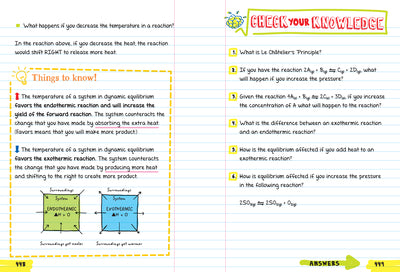 What happens if you decrease the temperature in a reaction?
In the reaction above, if you decrease the heat, the reaction
would shift RIGHT to release more heat.
Things to know!
The temperature of a system in dynamic equilibrium
favors the endothermic reaction and will increase the
yield of the forward reaction. The system counteracts
the change that you have made by absorbing the extra heat.
(Favors means that you will make more product.)
The temperature of a system in dynamic equilibrium
favors the exothermic reaction. The system counteracts
the change that you have made by producing more heat
and shifting to the right to create more product.
Surroundings
System
ENDOTHERMIC
ΔH > 0
Surroundings get cooler
Surroundings
System
EXOTHERMIC
ΔH < 0
Surroundings get warmer
448
CHECK YOUR KNOWLEDGE
1. What is Le Châtelier's Principle?
2. If you have the reaction 2A(g) + B(g) ⇌ C(g) + 2D(g), what
will happen if you increase the pressure?
3. Given the reaction 4A(s) + B(g) ⇌ 2C(s) + 3D(s), if you increase
the concentration of A what will happen to the reaction?
4. What is the difference between an exothermic reaction
and an endothermic reaction?
5. How is the equilibrium affected if you add heat to an
exothermic reaction?
6. How is equilibrium affected if you increase the pressure
in the following reaction?
2SO3(g) ⇌ 2SO2(g) + O2(g)
ANSWERS
449